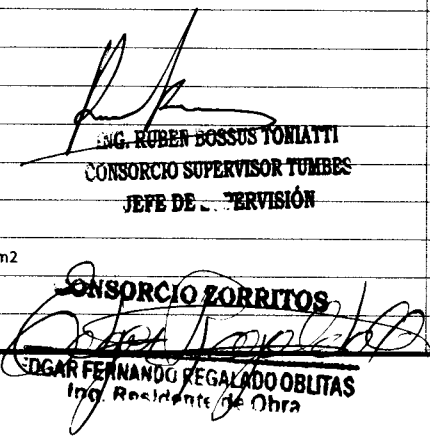 ING. RUBEN BOSSUS TONIATTI
CONSORCIO SUPERVISOR TUMBES
JEFE DE SUPERVISIÓN
m2
CONSORCIO ZORRITOS
EDGAR FERNANDO REGALADO OBLITAS
Ing. Residente de Obra